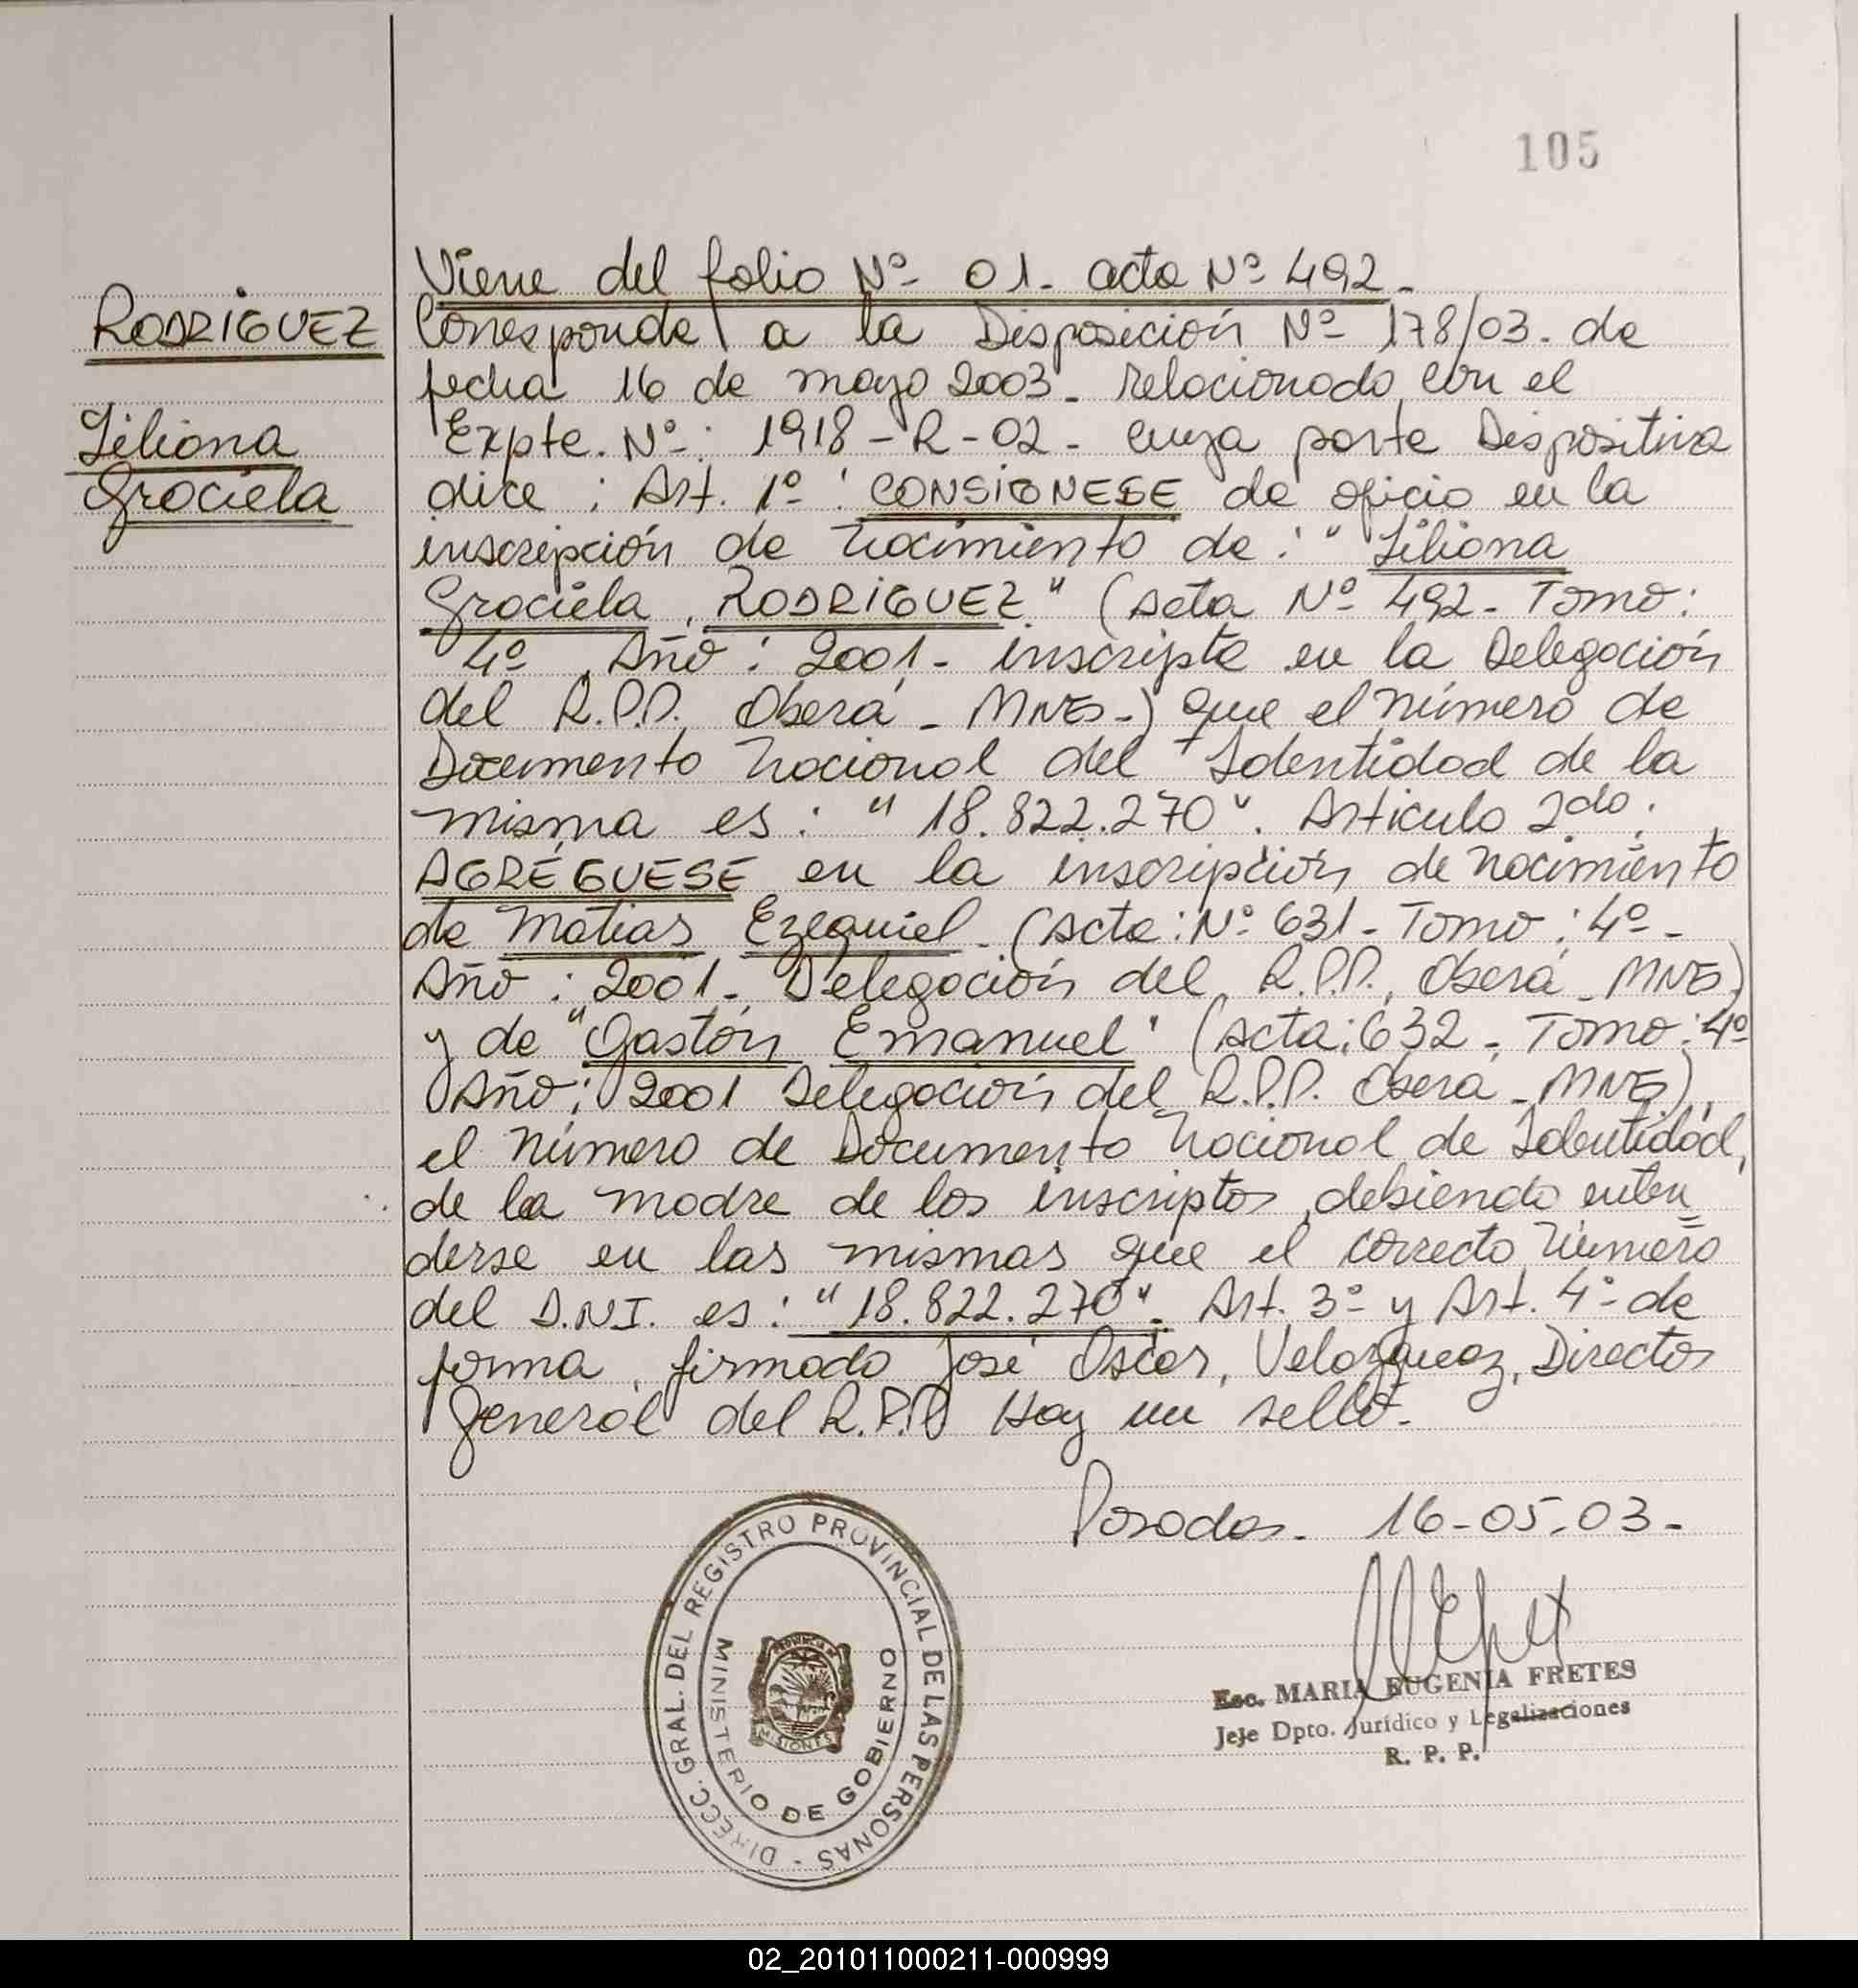 105
RODRIGUEZ
Liliana
Graciela
Viene del folio Nº 01. acta Nº 492.
Corresponde a la Disposición Nº 178/03. de
fecha 16 de mayo 2003. relacionado con el
Expte. Nº: 1918-R-02- cuya parte Dispositiva
dice: Art. 1º: CONSIGNESE de oficio en la
inscripción de nacimiento de: "Liliana
Graciela, RODRIGUEZ" (Acta Nº 492- Tomo:
4º Año: 2001- inscripta en la Delegación
del R.P.P. Oberá - MNES-) que el número de
Documento Nacional del Identidad de la
misma es: "18.822.270". Articulo 2do:
AGRÉGUESE en la inscripción de nacimiento
de Matias Ezequiel. (Acta: Nº 631- Tomo: 4º-
Año: 2001- Delegación del R.P.P. Oberá - MNES)
y de "Gastón Emanuel" (Acta: 632- Tomo: 4º
Año: 2001 Delegación del R.P.P. Oberá - MNES),
el número de Documento Nacional de Identidad,
de la madre de los inscriptos, debiendo enten=
derse en las mismas que el correcto número
del D.N.I. es: "18.822.270". Art. 3º y Art. 4º de
forma, firmado José Oscar, Velazquez, Director
General del R.P.P Hay un sello.
Posadas. 16-05-03-
DIRECC. GRAL. DEL REGISTRO PROVINCIAL DE LAS PERSONAS -
MINISTERIO DE GOBIERNO
PROVINCIA DE
MISIONES
Esc. MARIA EUGENIA FRETES
Jefe Dpto. Jurídico y Legalizaciones
R. P. P.
02_201011000211-000999